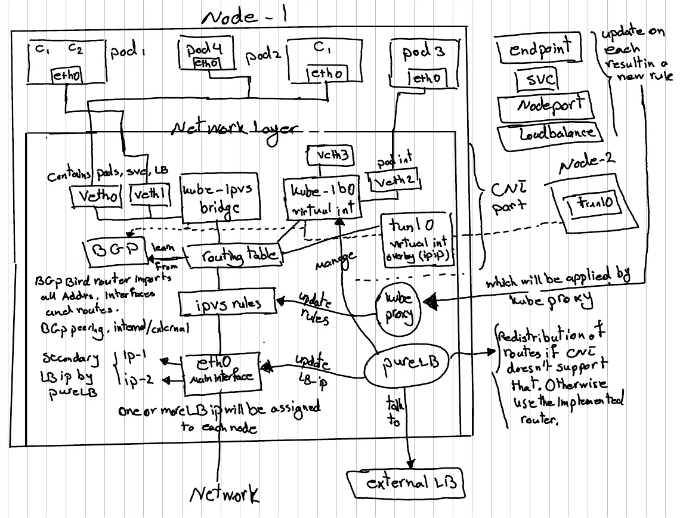 Node-1
C1 C2
eth0
pod1
pod4
eth0
pod2
C1
eth0
pod3
eth0
endpoint
svc
Nodeport
Loudbalance
update on
each
result in a
new rule
Network layer
Contains pods, svc, LB
veth0
veth1
kube-ipvs
bridge
veth3
kube-lb0
virtual int
pod int
veth2
CNI
part
Node-2
tunl0
tunl0
virtual int
overlay (ipip)
BGP
learn
from
routing table
manage
BGP Bird router imports
all Addrs, Interfaces
and routes.
BGP peering, internal/external
ipvs rules
update
rules
kube
proxy
which will be applied by
kube proxy
Secondary
LB ip by
pureLB
ip-1
ip-2
eth0
Main interface
update
LB-ip
pureLB
Redistribution of
routes if CNI
doesn't support
that. Otherwise
use the implemented
router.
one or more LB ip will be assigned
to each node
talk
to
Network
external LB